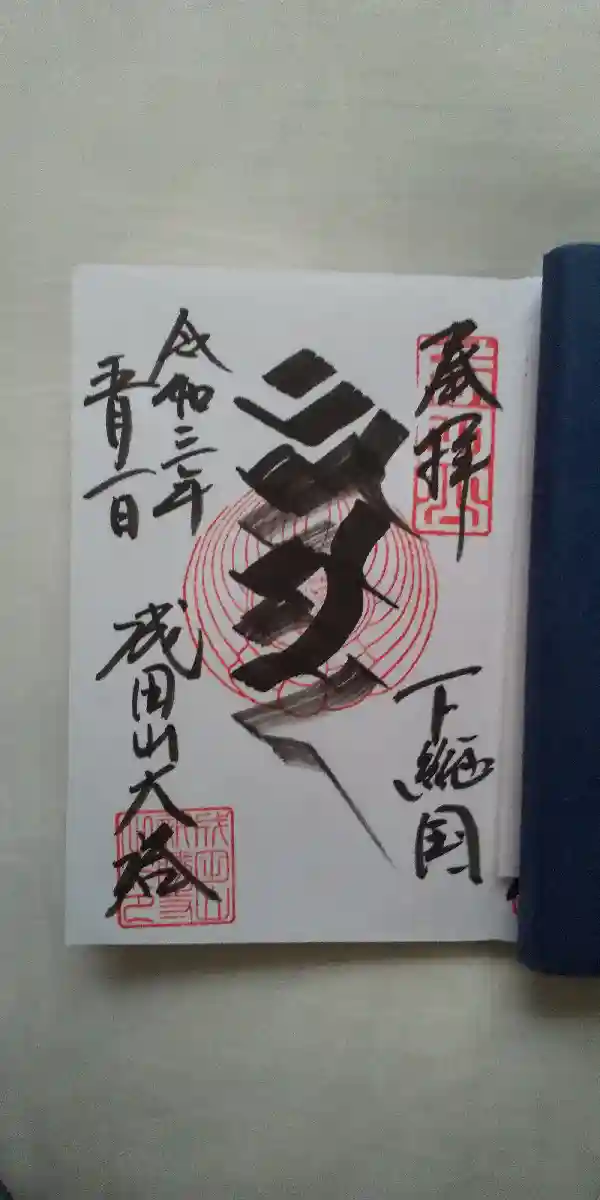 奉拝
下総国
令和三年
五月一日
成田山大塔